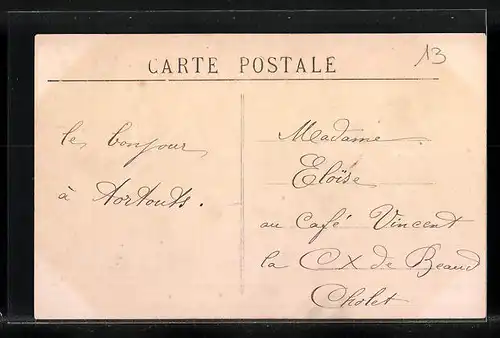 CARTE POSTALE
13
le bonjour
à
Madame
Eloïse
au Café Vincent
la CX de Beaud
Cholet